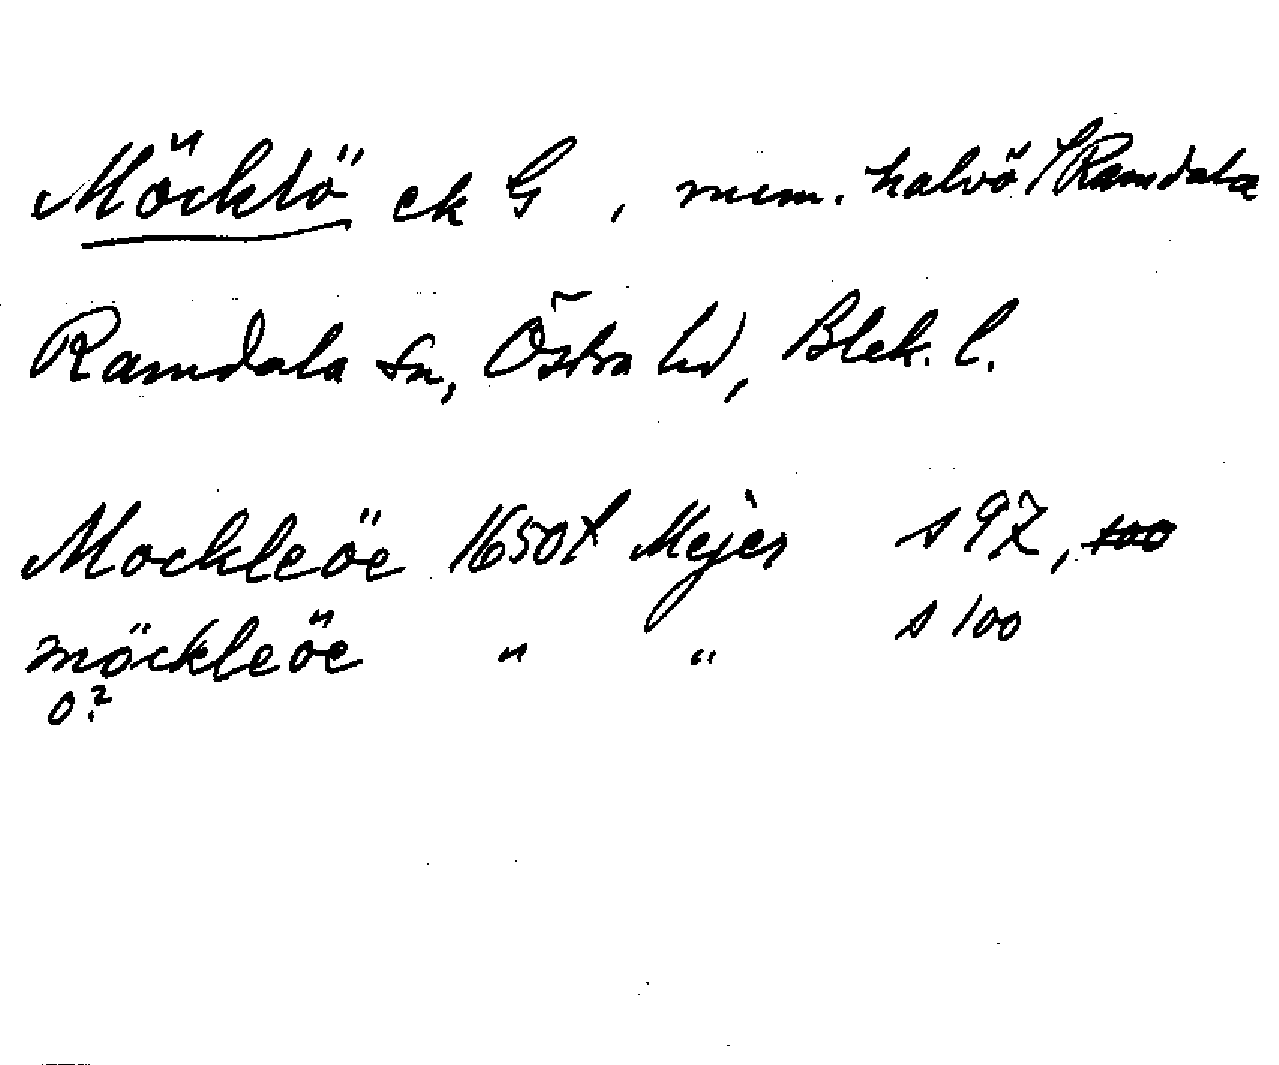 Möcklö ek G, num. halvö i Ramdala
Ramdala sn, Östra hd, Blek. l.
Mockleöe 1650t Mejer s 97, 100
möckleöe " " s 100
o?